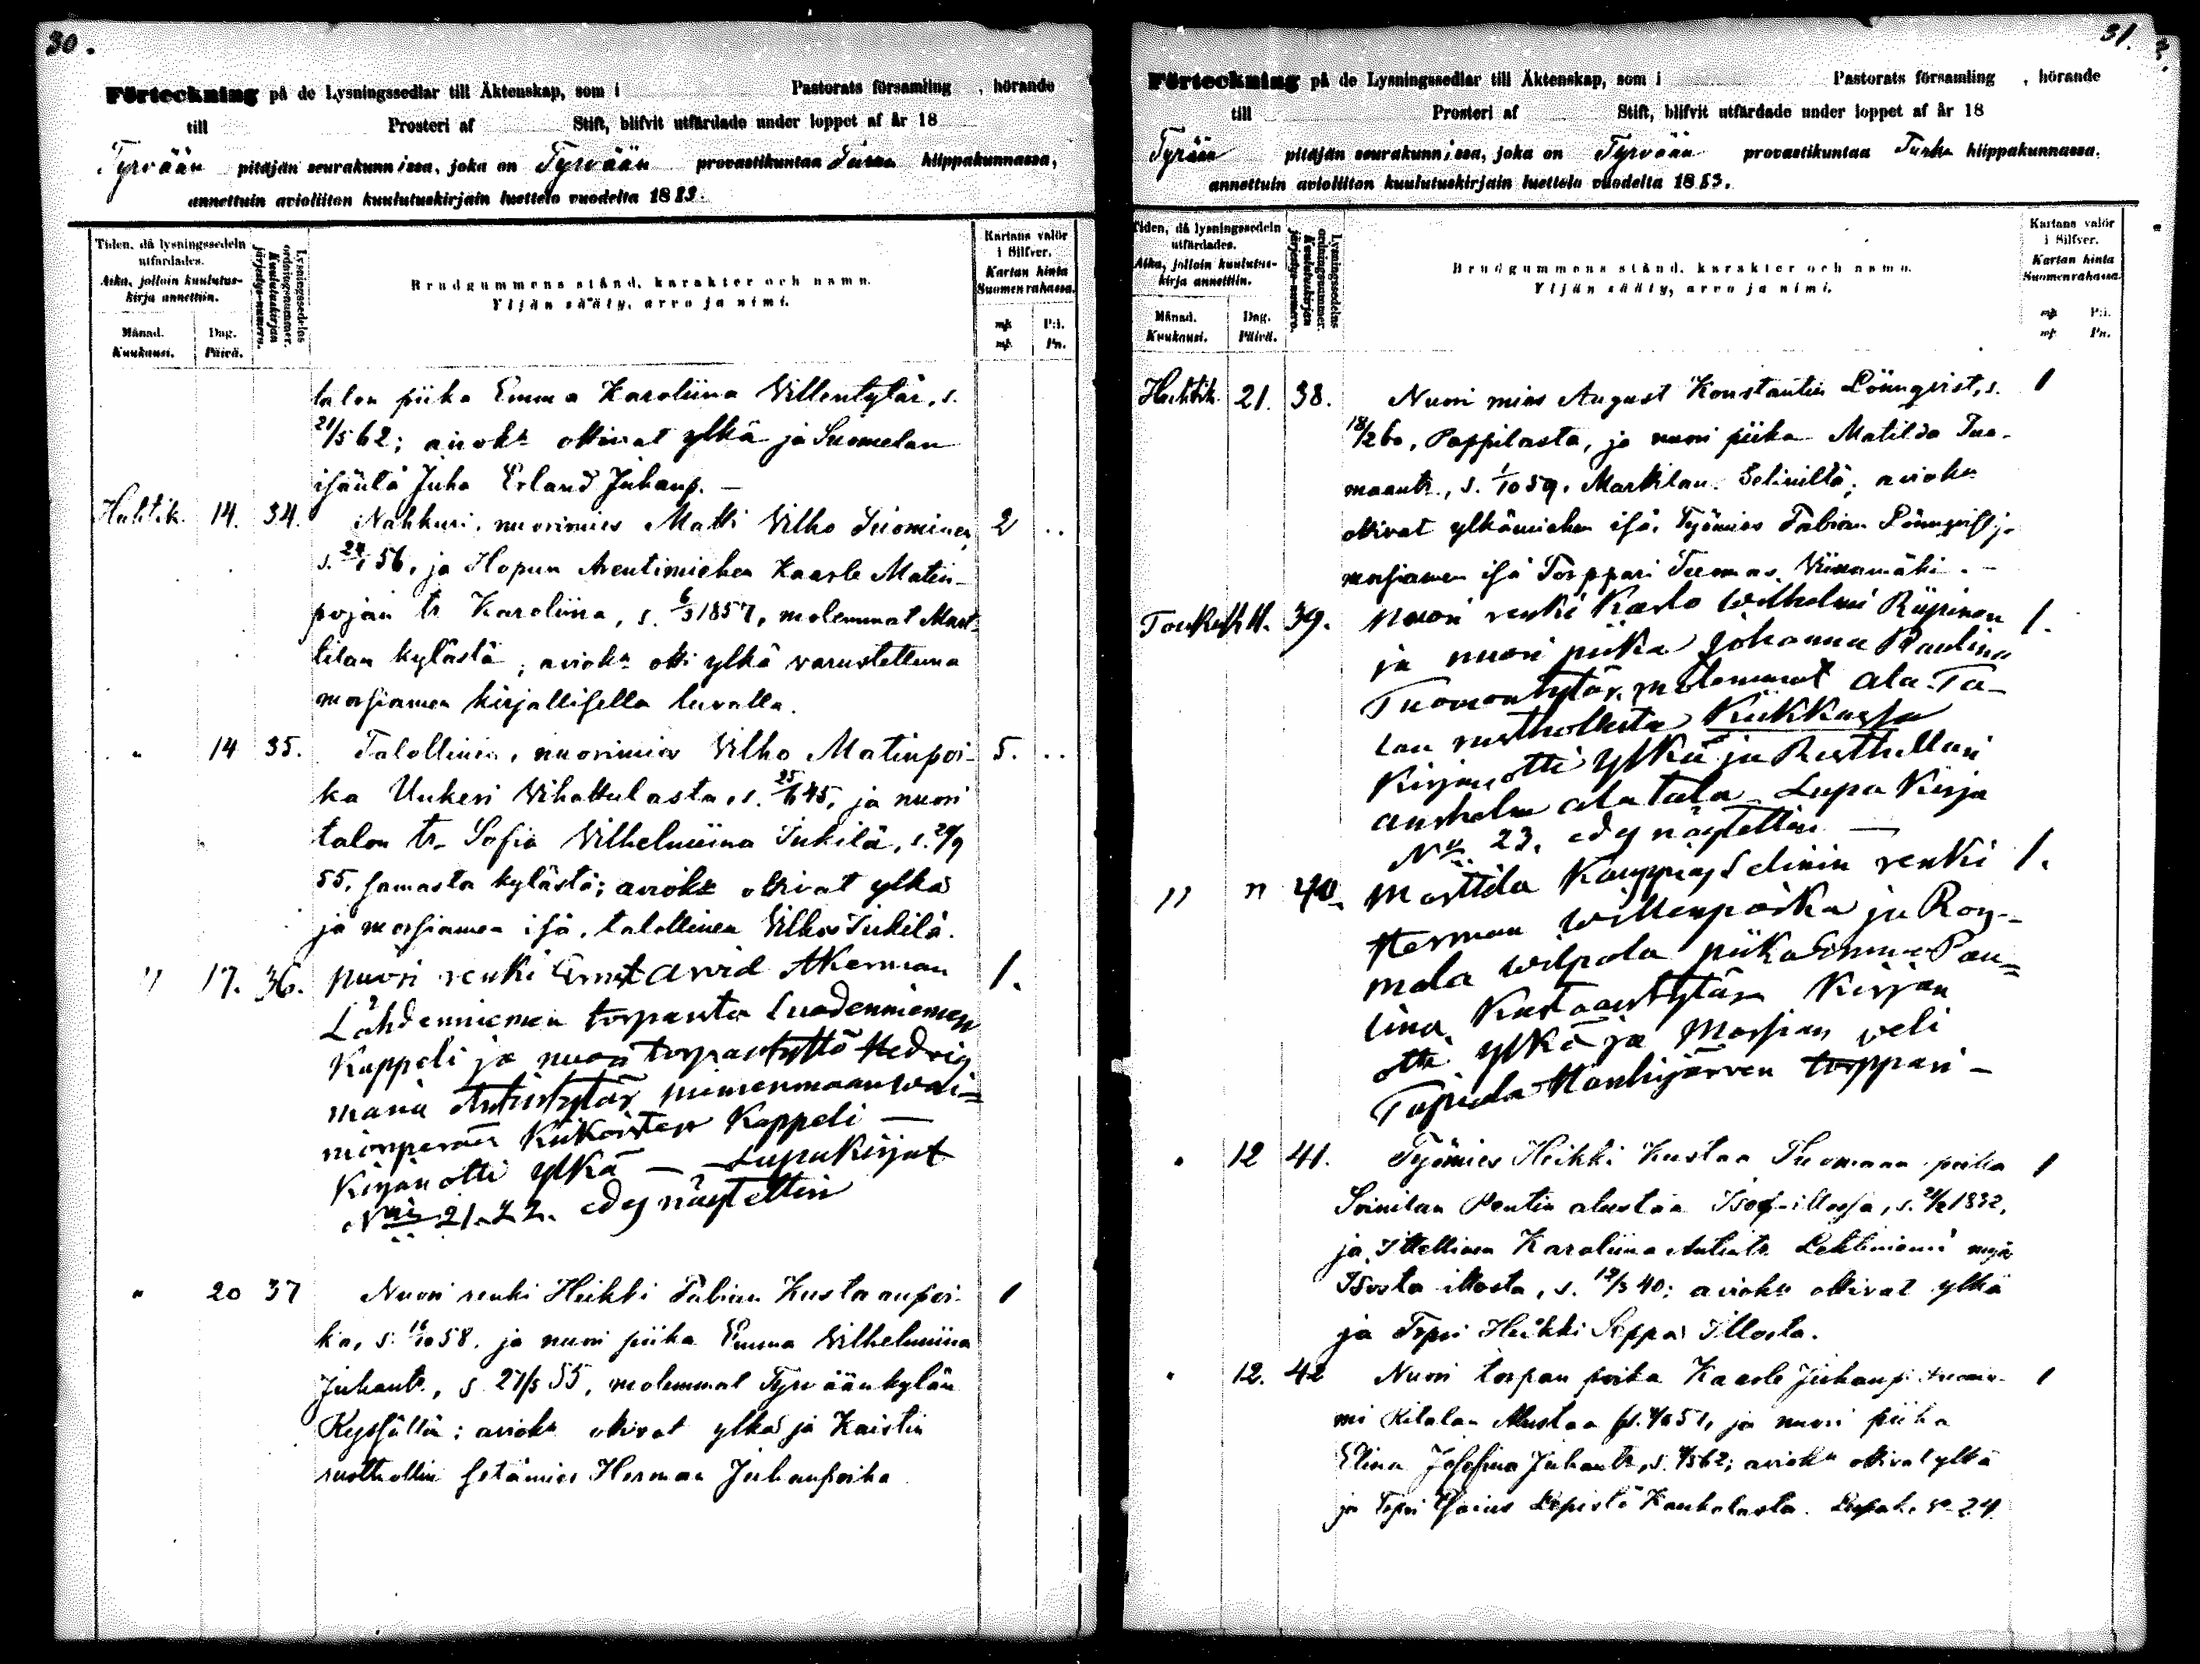 30.
Förteckning på de Lysningssedlar till Äktenskap, som i Pastorats församling , hörande
till Prosteri af Stift, blifvit utfärdade under loppet af år 18
Tyrvään pitäjän seurakunnissa, joka on Tyrvään provastikuntaa Turun hiippakunnassa,
annettuin avioliiton kuulutuskirjain luettelo vuodelta 1883.
Tiden, då lysningssedeln utfärdades.
Aika, jolloin kuulutuskirja annettiin.
Månad.
Kuukausi.
Dag.
Päivä.
Lysningssedelns ordningsnummer.
Kuulutuskirjan järjestys-numero.
Brudgummens stånd, karakter och namn.
Yljän sääty, arvo ja nimi.
Kartans valör i Silfver.
Kartan hinta Suomenrahassa.
mk P:i.
mk. Pn.
talon piika Emma Karoliina Villentytär, s.
21/5 62; aviokn ottivat ylkä ja Suomelan
isäntä Juho Erland Juhanp. —
Huhtik. 14. 34. Nahkuri, nuorimies Matti Vilho Suominen, 2 ..
56, ja Hopun Arentimiehen Kaarle Matin-
pojan tr Karoliina, s. 6/3 1857, molemmat Mart-
tilan kylästä; aviokn otti ylkä varustettuna
morsiamen kirjallisella luvalla.
" 14 35. Talollinen, nuorimies Vilho Matinpoi- 5. ..
ka Unkeri Vihattulasta, s. 45, ja nuori
talon tr. Sofia Vilhelmiina Jukilä, s. 29/9
55, samasta kylästä; aviokn ottivat ylkä
ja morsiamen isä, talollinen Vilho Jukilä.
" 17. 36. nuori renki Ernst Arvid Akerman 1.
Lähdenniemen torpasta Suodenniemen
Kappeli ja nuori torpantyttö Hedvig
maria Antintytär
Kiikoisten Kappeli —
Kirjan otti ylkä — Lupakirjat
Nris 21. 22. edes näytettiin
" 20 37 Nuori renki Heikki Fabian Kustaanpoi- 1
ka, s. 58, ja nuori piika Emma Vilhelmiina
Juhantr., s 27/5 55, molemmat Tyrväänkylän
aviokn ottivat ylkä ja Kaistin
rusthollin setämies Herman Juhanpoika
31.
Förteckning på de Lysningssedlar till Äktenskap, som i Pastorats församling , hörande
till Prosteri af Stift, blifvit utfärdade under loppet af år 18
Tyrvään pitäjän seurakunnissa, joka on Tyrvään provastikuntaa Turku hiippakunnassa.
annettuin avioliiton kuulutuskirjain luettelo vuodelta 1883.
Tiden, då lysningssedeln utfärdades.
Aika, jolloin kuulutuskirja annettiin.
Månad.
Kuukausi.
Dag.
Päivä.
Lysningssedelns ordningsnummer.
Kuulutuskirjan järjestys-numero.
Brudgummens stånd, karakter och namn.
Yljän sääty, arvo ja nimi.
Kartans valör i Silfver.
Kartan hinta Suomenrahassa.
mk P:i.
mk Pn.
Huhtik. 21. 38. Nuori mies August Konstantin Lönnqvist, s. 1
18/2 60, Pappilasta, ja nuori piika Matilda Tuo-
maantr., s. 1/10 59, Marttilan Seliniltä; aviokn
ottivat ylkämiehen isä, Työmies Fabian Lönnqvist ja
morsiamen isä Torppari Tuomas Viinamäki. —
Toukok 11. 39. Nuori renki Karlo Wilhelmi Riipinen 1.
ja nuori piika Johanna Paulina
Tuomontytär, molemmat Ala-Ta-
lan rusthollista Kiikkassa
Kirjan otti ylkä ja Rusthollari
ala tala Lupa Kirja
No 23. edes näytettiin —
" " 40. Marttila Kauppias Selinin renki 1.
Herman Willenpoika ja Roy-
mala wilpola piika Emma Pau-
lina Kustaantytär Kirjan
otti ylkä ja Morsian veli
Tapiola Hanhijärven torppari —
" 12 41. Työmies Heikki Kustaa Tuomaan poika 1
Pentin alustaa s. 1832,
ja Itsellinen Karoliina Antintr. Lehtiniemi myös
s. 12/3 40; aviokn ottivat ylkä
ja Torpri Heikki Seppä Illosta.
" 12. 42 Nuori torpan poika Kaarle Juhanp. 1
Ritalan Alustaa 51, ja nuori piika
Elina Josefina Juhantr., s. 62; aviokn ottivat ylkä
ja Torpri Lepistö Kaukolasta. Lupak. No 24.